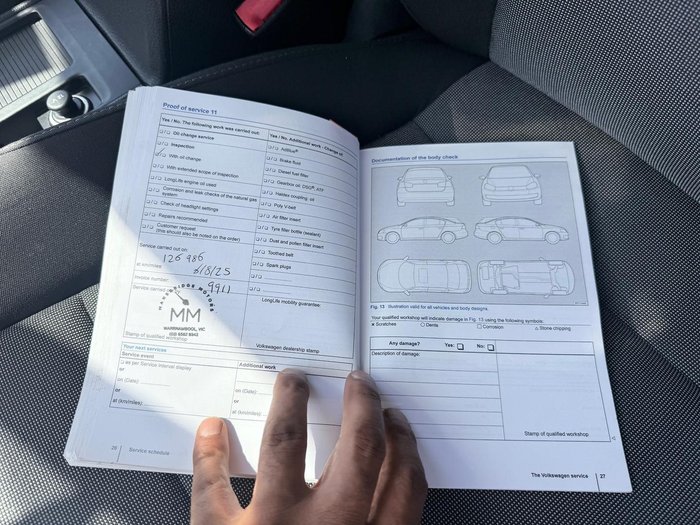 Proof of service 11
Yes / No. The following work was carried out:
Oil change service
Inspection
With oil change
With extended scope of inspection
LongLife engine oil used
Corrosion and leak checks of the natural gas
system
Check of headlight settings
Repairs recommended
Customer request
(this should also be noted on the order)
Service carried out on:
126 986
at km/miles:
6/8/25
Invoice number:
9911
Service carried
MM
WARRNAMBOOL, VIC
Stamp of qualified workshop
Yes / No. Additional work - Change of:
AdBlue®
Brake fluid
Diesel fuel filter
Gearbox oil: DSG®, ATF
Haldex coupling: oil
Poly V-belt
Air filter insert
Tyre filler bottle (sealant)
Dust and pollen filter insert
Toothed belt
Spark plugs
LongLife mobility guarantee:
Volkswagen dealership stamp
Your next services
Service event
as per Service interval display
or
on (Date):
or
at (km/miles):
Additional work
on (Date):
or
at (km/miles):
26
Service schedule
Documentation of the body check
Fig. 13 Illustration valid for all vehicles and body designs.
Your qualified workshop will indicate damage in Fig. 13 using the following symbols:
x Scratches O Dents □ Corrosion △ Stone chipping
Any damage? Yes: No:
Description of damage:
Stamp of qualified workshop
The Volkswagen service 27